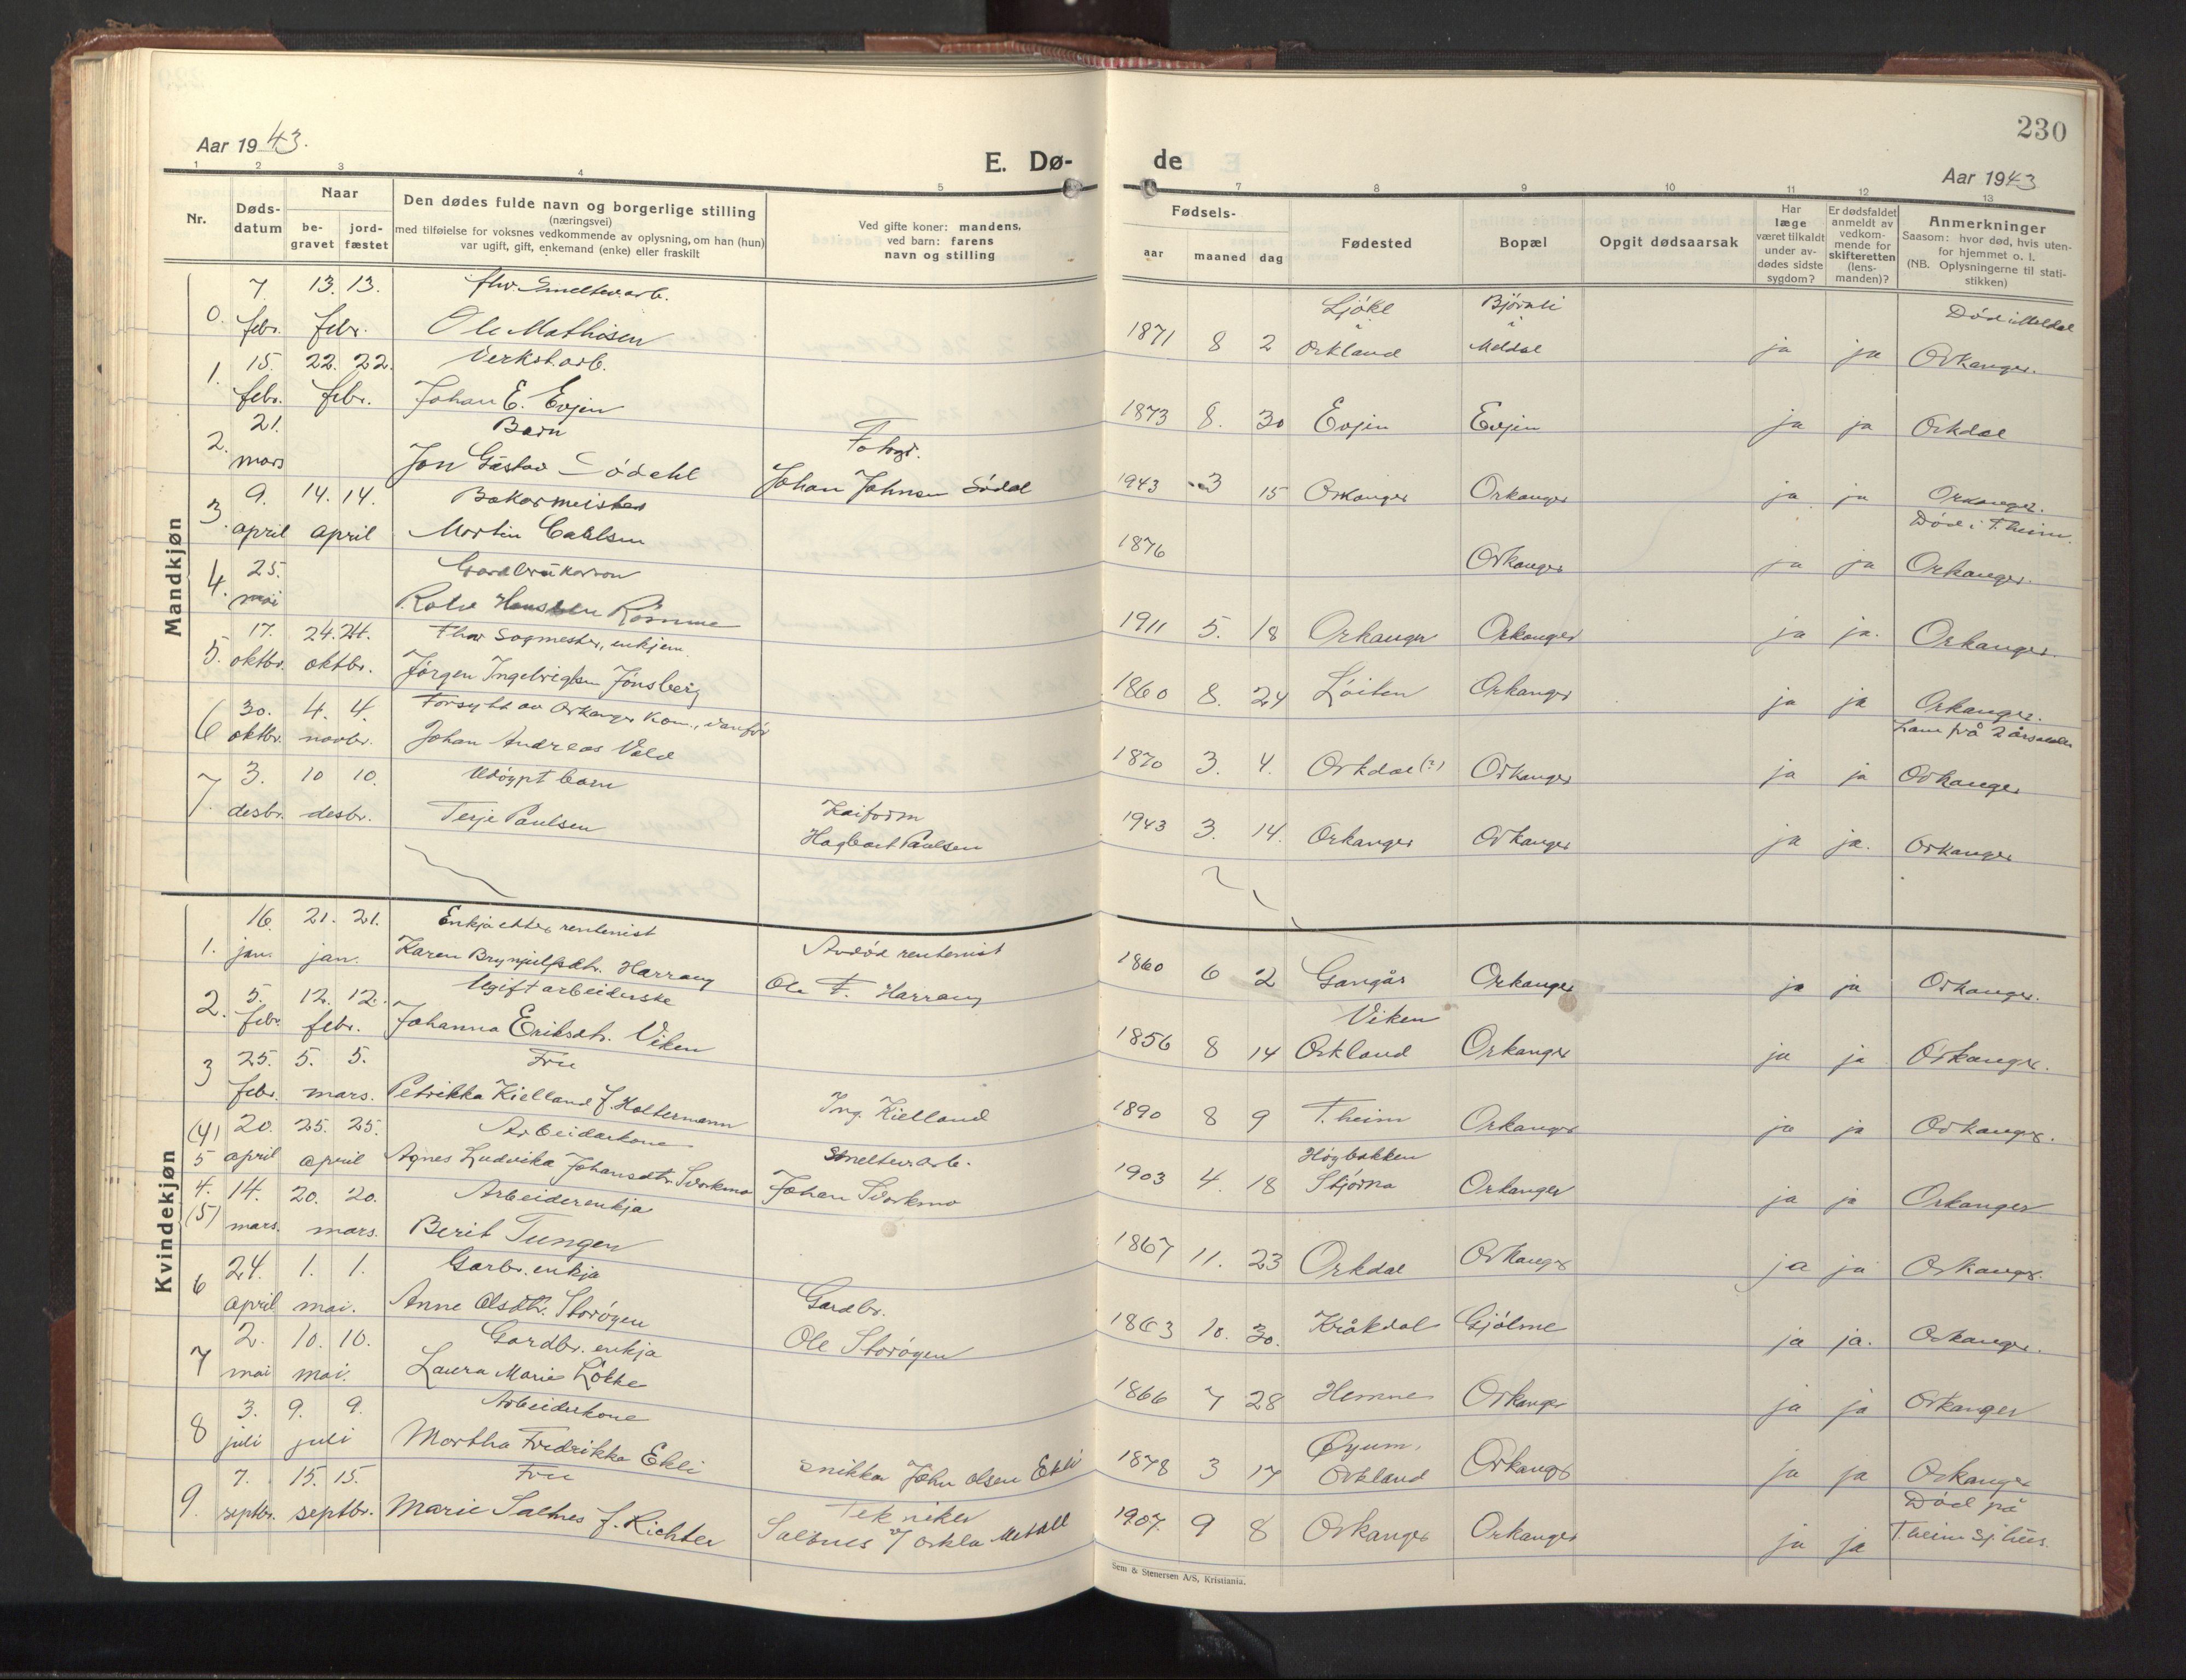 230
Aar 1943.
E. Dø-
de
Aar 1943
1 2 3 4 5
7 8 9 10 11 12 13
Nr.
Døds-
datum
Naar
be-
gravet
jord-
fæstet
Den dødes fulde navn og borgerlige stilling
(næringsvei)
med tilføielse for voksnes vedkommende av oplysning, om han (hun)
var ugift, gift, enkemand (enke) eller fraskilt
Ved gifte koner: mandens,
ved barn: farens
navn og stilling
Fødsels-
aar maaned dag
Fødested
Bopæl
Opgit dødsaarsak
Har
læge
været tilkaldt
under av-
dødes sidste
sygdom?
Er dødsfaldet
anmeldt av
vedkom-
mende for
skifteretten
(lens-
manden)?
Anmerkninger
Saasom: hvor død, hvis uten-
for hjemmet o. l.
(NB. Oplysningerne til stati-
stikken)
Mandkjøn
7. 13. 13. fhv. Smeltev.arb. Ljøkl Bjørnli Død i Meldal
0. febr. febr. Ole Mathisen 1871 8 2 i Orkland i Meldal ja ja Orkanger.
15. 22. 22. Verkst.arb.
1. febr. febr. Johan E. Evjen 1873 8. 30 Evjen Evjen ja ja Orkdal
21. Barn Fotogr.
2. mars Jon Gustav Södahl Johan Johnsen Södal 1943 3 15 Orkanger Orkanger ja ja Orkanger.
9. 14. 14. Bakermeister Død i T.heim.
3. april april Martin Carlsen 1876 Orkanger ja ja Orkanger.
25. Gardbrukarson
4. mai Rolv Hanssen Römme 1911 5. 18 Orkanger Orkanger ja ja. Orkanger.
17. 24. 24. Fhv. Sagmester, enkjem.
5. oktbr. oktbr. Jørgen Ingebrigtsen Jönsberg 1860 8. 24 Løiten Orkanger ja ja Orkanger.
30. 4. 4. Forsytt av Orkanger kom., vanfør Lam frå 2 årsalder
6 oktbr. novbr. Johan Andreas Vold 1870 3. 4. Orkdal (?) Orkanger ja ja Orkanger
3. 10 10. Udøypt barn Kaiform
7. desbr. desbr. Terje Paulsen Hagbart Paulsen 1943 3. 14. Orkanger Orkanger ja ja. Orkanger
Kvindekjøn
16 21. 21. Enkja etter rentenist Avdöd rentenist
1. jan. jan. Karen Brynjulfsdtr. Harrang Ole F. Harrang 1860 6 2 Gangår Orkanger ja ja Orkanger.
5. 12. 12. Ugift arbeiderske Viken
2. febr. febr. Johanna Eriksdtr. Viken 1856 8 14 Orkland Orkanger ja ja Orkanger.
25. 5. 5. Fru
3 febr. mars. Petrikka Kielland f. Holtermann Ing. Kielland 1890 8 9 T.heim Orkanger ja ja Orkanger.
(4) 20. 25. 25. Arbeidarkone Smeltev.arb. Høgbakken
5 april april Agnes Ludvika Johansdtr. Svorkmo Johan Svorkmo 1903 4. 18 Stjørna Orkanger ja ja Orkanger
4. 14. 20. 20. Arbeiderenkja
(5) mars. mars. Berit Tungen 1867 11. 23 Orkdal Orkanger ja ja Orkanger.
24. 1. 1. Garbr. enkja Gardbr.
6 april mai. Anne Olsdtr. Storøyen Ole Storøyen 1863 10. 30. Kråkdal Gjölme ja ja. Orkanger.
2. 10. 10. Gardbr. enkja
7 mai mai. Laura Marie Løkke 1866 7 28 Hemne Orkanger ja ja Orkanger
3. 9. 9. Arbeiderkone Øyum,
8 juli juli Martha Fredrikke Ekli snikker John Olsen Ekli 1878 3 17 Orkland Orkanger ja ja Orkanger
7. 15. 15. Fru Tekniker Død på
9. septbr. septbr. Marie Saltnes f. Richter Saltnes v/ Orkla Metall 1907 9 8 Orkanger Orkanger ja ja T.heim sj.hus.
Sem & Stenersen A/S, Kristiania.